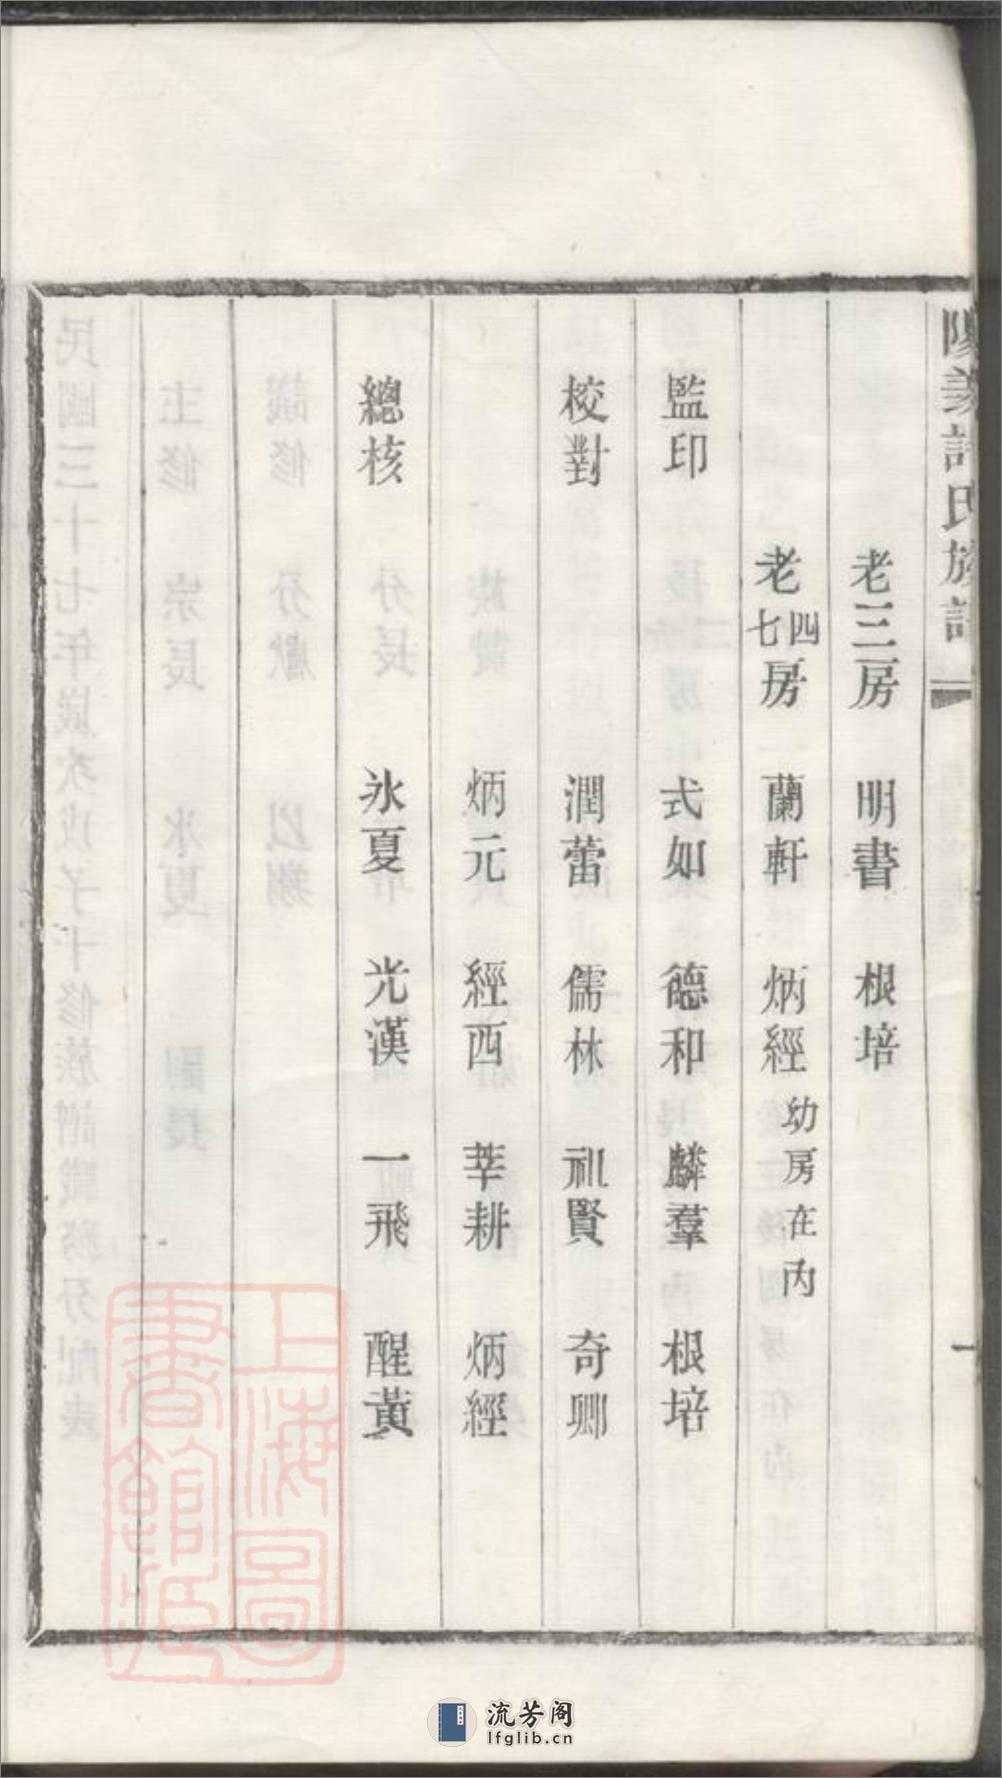 陽義許氏族譜
一
老三房 明書 根培
老四七房 蘭軒 炳經 幼房在內
監印 式如 德和 麟羣 根培
校對 潤蕾 儒林 祀賢 奇卿
炳元 經西 莘耕 炳經
總核 氷夏 光漢 一飛 醒黃
上海圖書館藏
流芳阁
lfglib.cn